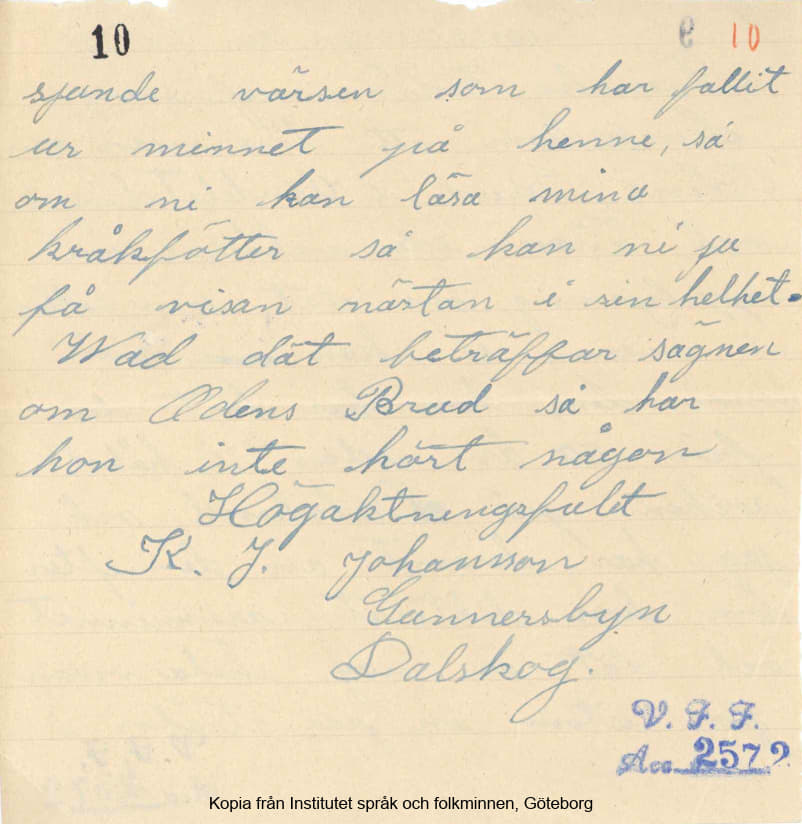 10 10
sjunde värsen som har fallit
ur minnet på henne, så
om ni kan läsa mina
kråkfötter så kan ni ju
få visan nästan i sin helhet.
Wad dät beträffar sägnen
om Odens Brud så har
hon inte hört någon
Högaktningsfullt
K. J. Johansson
Gunnersbyn
Dalskog.
V. F. F.
Acc. 2572
Kopia från Institutet språk och folkminnen, Göteborg